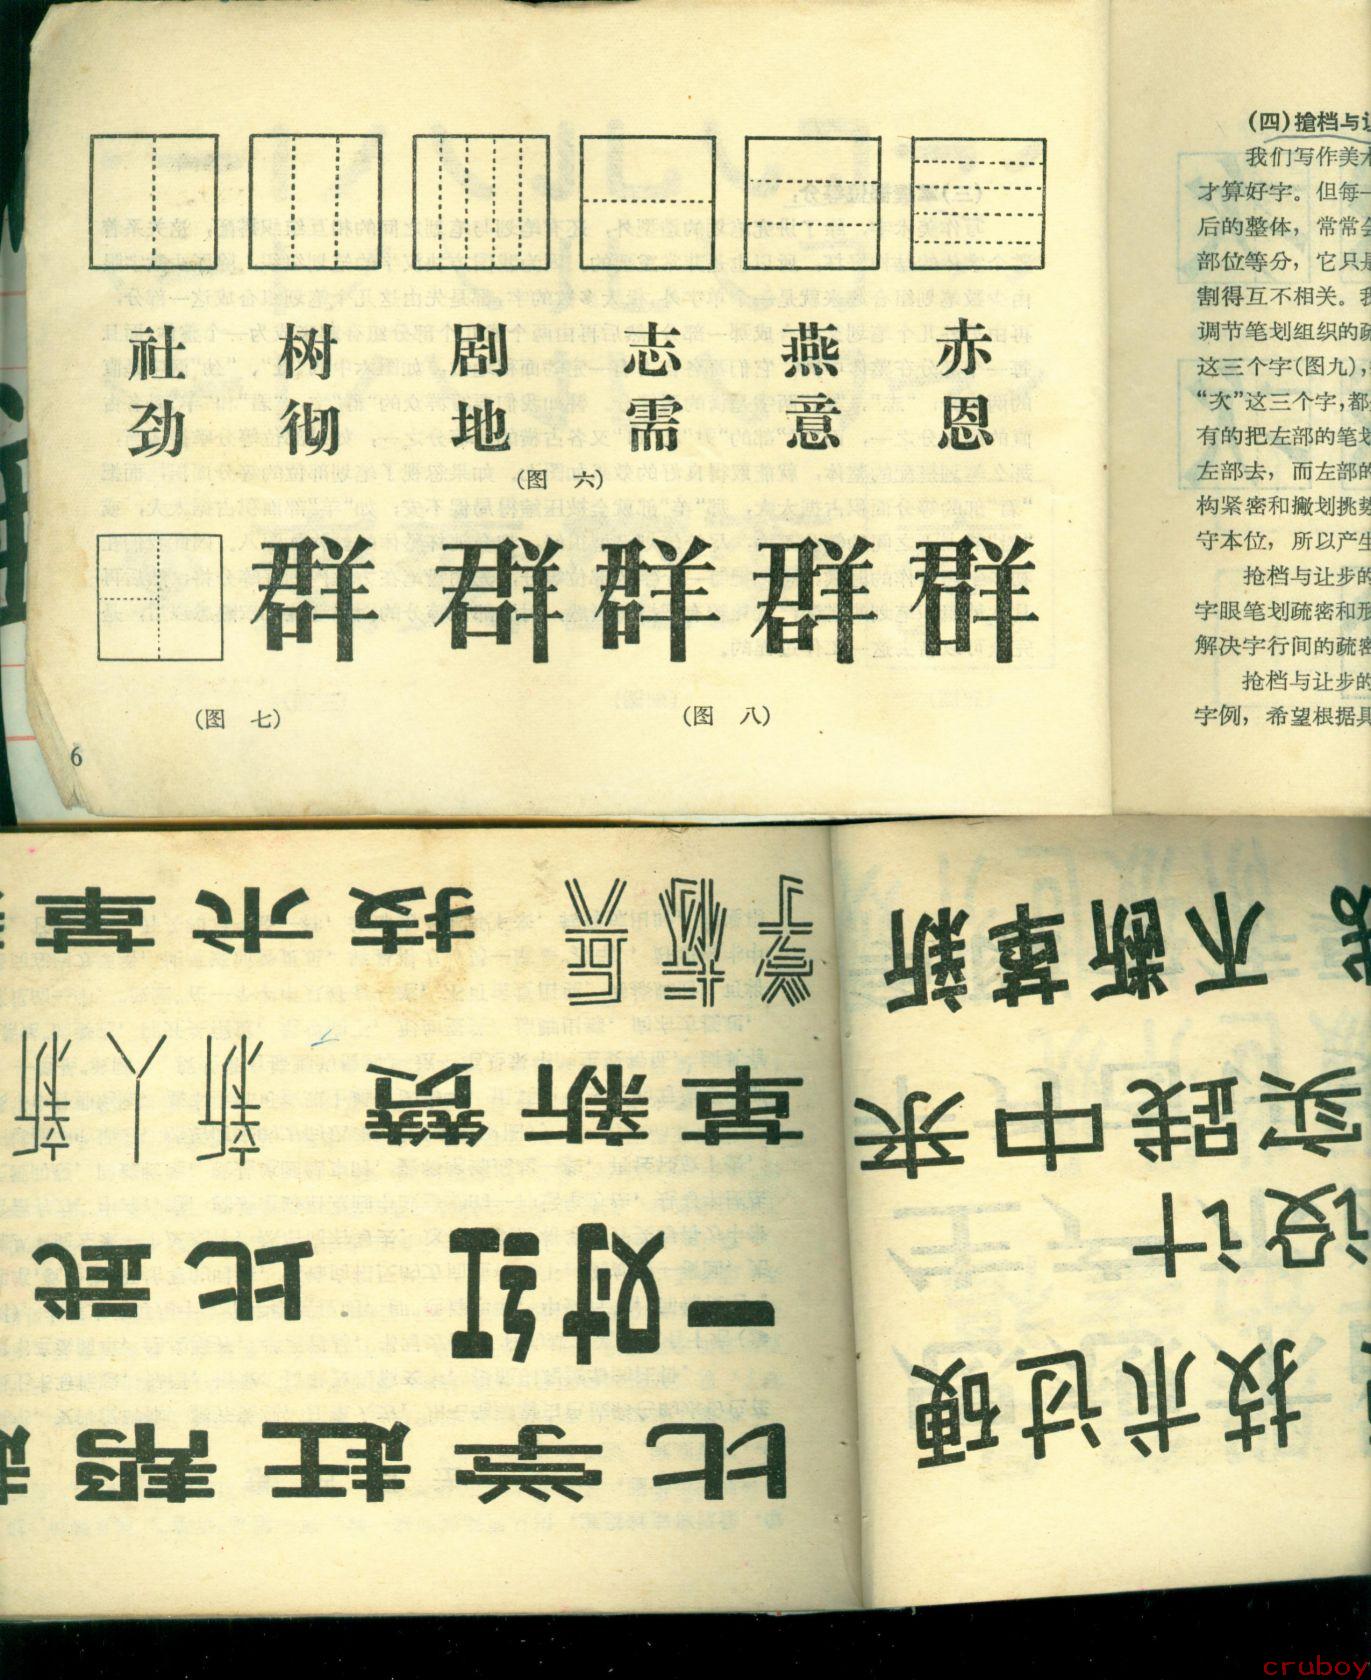 社 树 剧 志 燕 赤
劲 彻 地 需 意 恩
(图 六)
群 群 群 群 群
(图 七)
(图 八)
6
(四)搶档与
我们写作美术
才算好字。但每一
后的整体，常常会
部位等分，它只是
割得互不相关。我
调节笔划组织的疏
这三个字(图九)，
“次”这三个字，都
有的把左部的笔划
左部去，而左部的
构紧密和撇划挑势
守本位，所以产生
抢档与让步的
字眼笔划疏密和形
解决字行间的疏密
抢档与让步的
字例，希望根据具
技术过硬
设计
实践中来
不断革新
比学赶帮
一对红 比武
革新赞 新人新
兵 技术革
cruboy